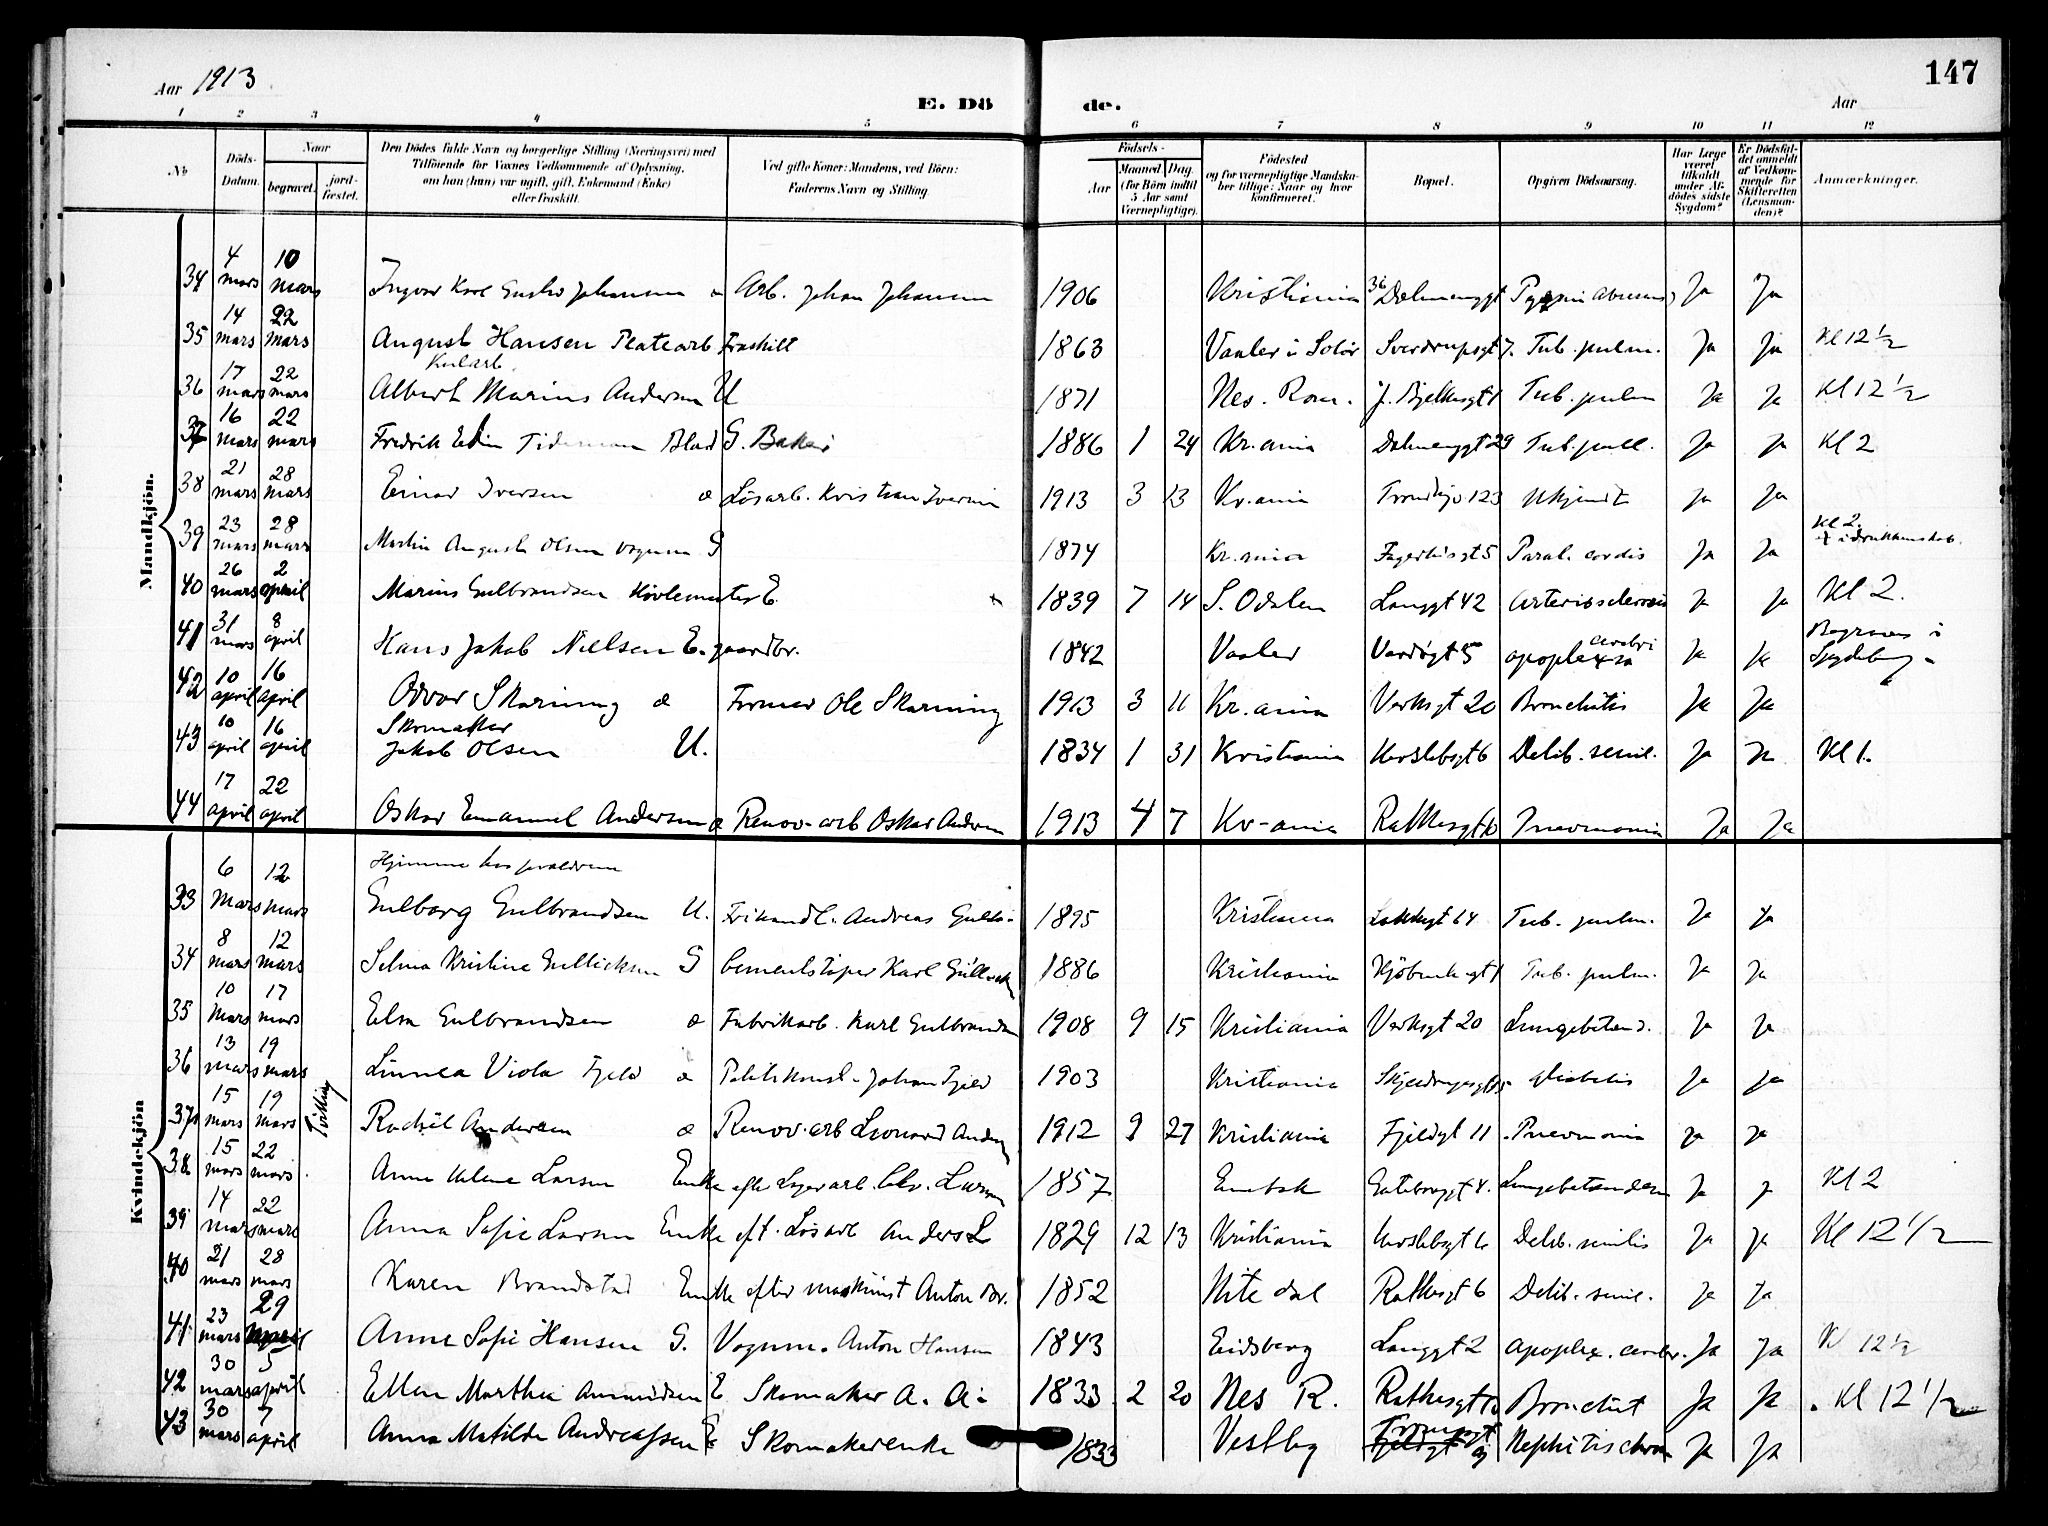 Aar 1913
E. Dö de.
Aar
147
1 2 3 4 5 6 7 8 9 10 11 12
No
Döds-Datum.
Naar
begravet.
jord-fæstet.
Den Dödes fulde Navn og borgerlige Stilling (Næringsvei) med Tilföiende for Voxnes Vedkommende af Oplysning, om han (hun) var ugift, gift, Enkemand (Enke) eller fraskilt.
Ved gifte Koner: Mandens, ved Börn: Faderens Navn og Stilling.
Födsels-
Aar
Maaned
Dag.
(for Börn indtil 5 Aar samt Værnepligtige).
Födested og for værnepligtige Mandskaber tillige: Naar og hvor konfirmeret.
Bopæl.
Opgiven Dödsaarsag.
Har Læge været tilkaldt under Afdödes sidste Sygdom?
Er Dödsfaldet anmeldt af Vedkommende for Skifteretten (Lensmanden)?
Anmærkninger.
Mandkjön.
34 4 mars 10 mars Ingvar Karl Gustav Johansen Arb. Johan Johansen 1906 Kristiania 36 Ja Ja
35 14 mars 22 mars August Hansen Fraskilt 1863 Vaaler i Solör Sverdrupsgt 7. Tub. pulm. Ja Ja Kl 12 1/2
36 17 mars 22 mars Albert Marius Andersen U 1871 Nes. Rom. J. Bjelkesgt 1 Tub. pulm Ja Ja Kl 12 1/2
37 16 mars 22 mars Fredrik Tidemann G. 1886 1 24 Kr.ania Dalenenggt 29 Tub. pull. Ja Ja Kl 2
38 21 mars 28 mars Einar Iversen Lösarb. Kristian Iversen 1913 3 13 Kr.ania 123 Ukjendt Ja Ja
39 23 mars 28 mars Martin August Olsen Vognm G 1874 Kr.ania 5 Paral. cordis Ja Ja Kl 2.
40 26 mars 2 april Marius Gulbrandsen E. 1839 7 14 S. Odalen Langgt 42 Arteriosclerosis Ja Ja Kl 2.
41 31 mars 8 april Hans Jakob Nielsen E. gaardbr. 1842 Vaaler Vardögt 5 apoplexia cerebri Ja Ja Begraves i
42 10 april 16 april Odvar Skarning æ Former Ole Skarning 1913 3 11 Kr.ania Verksgt 20 Bronchitis Ja Ja
43 10 april 16 april Skomaker Jakob Olsen U. 1834 1 31 Kristiania Herslebsgt 6 Delib. senil. Ja Ja Kl 1.
44 17 april 22 april Oskar Emanuel Andersen æ Renov-arb Oskar Andersen 1913 4 7 Kr-ania Rathkesgt Pneumonia Ja Ja
Kvindekjön
Hjemme hos forældrene
33 6 Mars 12 mars Gulborg Gulbrandsen U. Andreas Gulb. 1895 Kristiania Lakkegt 64 Tub. pulm. Ja Ja
34 8 mars 12 mars Selma Kristine Gullicksen G Cementstöper Karl 1886 Kristiania Tub. pulm. Ja Ja
35 10 Mars 17 mars Elsa Gulbrandsen æ Fabrikarb. Karl Gulbrandsen 1908 9 15 Kristiania Verksgt 20 Lungebetænd. Ja Ja
36 13 mars 19 mars Linnea Viola Fjeld æ Politikonst. Johan Fjeld 1903 Kristiania diabetis Ja Ja
37 15 mars 19 mars Tvilling Rachel Andersen æ Renov.arb Leonard 1912 9 27 Kristiania Fjeldgt 11 Pneumonia Ja Ja
38 15 mars 22 mars Anne Helene Larsen Enke efter Larsen 1857 Enebak 4. Lungebetændelse Ja Ja Kl 2
39 14 mars 22 mars Anna Sofie Larsen Enke eft. Lösarb Anders L 1829 12 13 Kristiania Herslebsgt 6 Delib. senilis Ja Ja Kl 12 1/2
40 21 mars 28 mars Karen Brandstad Enke efter maskinist Anton Br. 1852 Nitedal Rathkesgt 6 Delib. senil. Ja Ja
41 23 mars 29 Anne Sofie Hansen G. Vognm. Anton Hansen 1843 Eidsberg Langgt 2 apoplex. cerebr. Ja Ja Kl 12 1/2
42 30 mars 5 april Ellen Marthea Amundsen E Skomaker A. A. 1833 2 20 Nes R. Rathkesgt Bronchit Ja Ja Kl 12 1/2
43 30 mars 7 april Anna Matilde Andreassen E Skomakerenke 1833 Vestby Nephritis chron Ja Ja